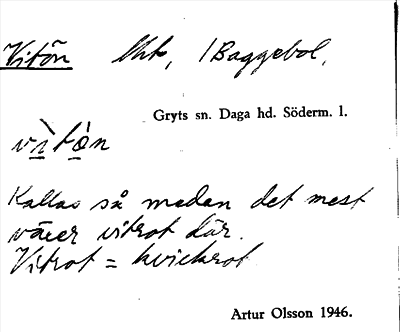 Vitön Åkt, / Baggebol,
Gryts sn. Daga hd. Söderm. l.
vìtò̀n
Kallas så medan det mest
växer vitrot där.
Vitrot = kvickrot
Artur Olsson 1946.